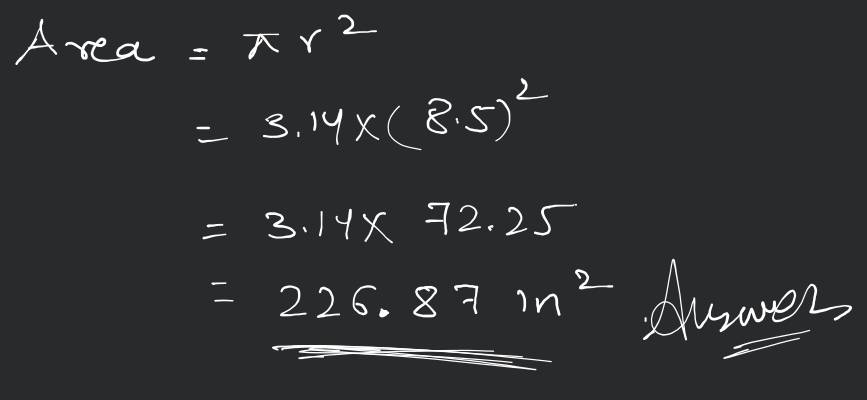 Area = πr²
= 3.14×(8.5)²
= 3.14× 72.25
= 226.87 in² Answer